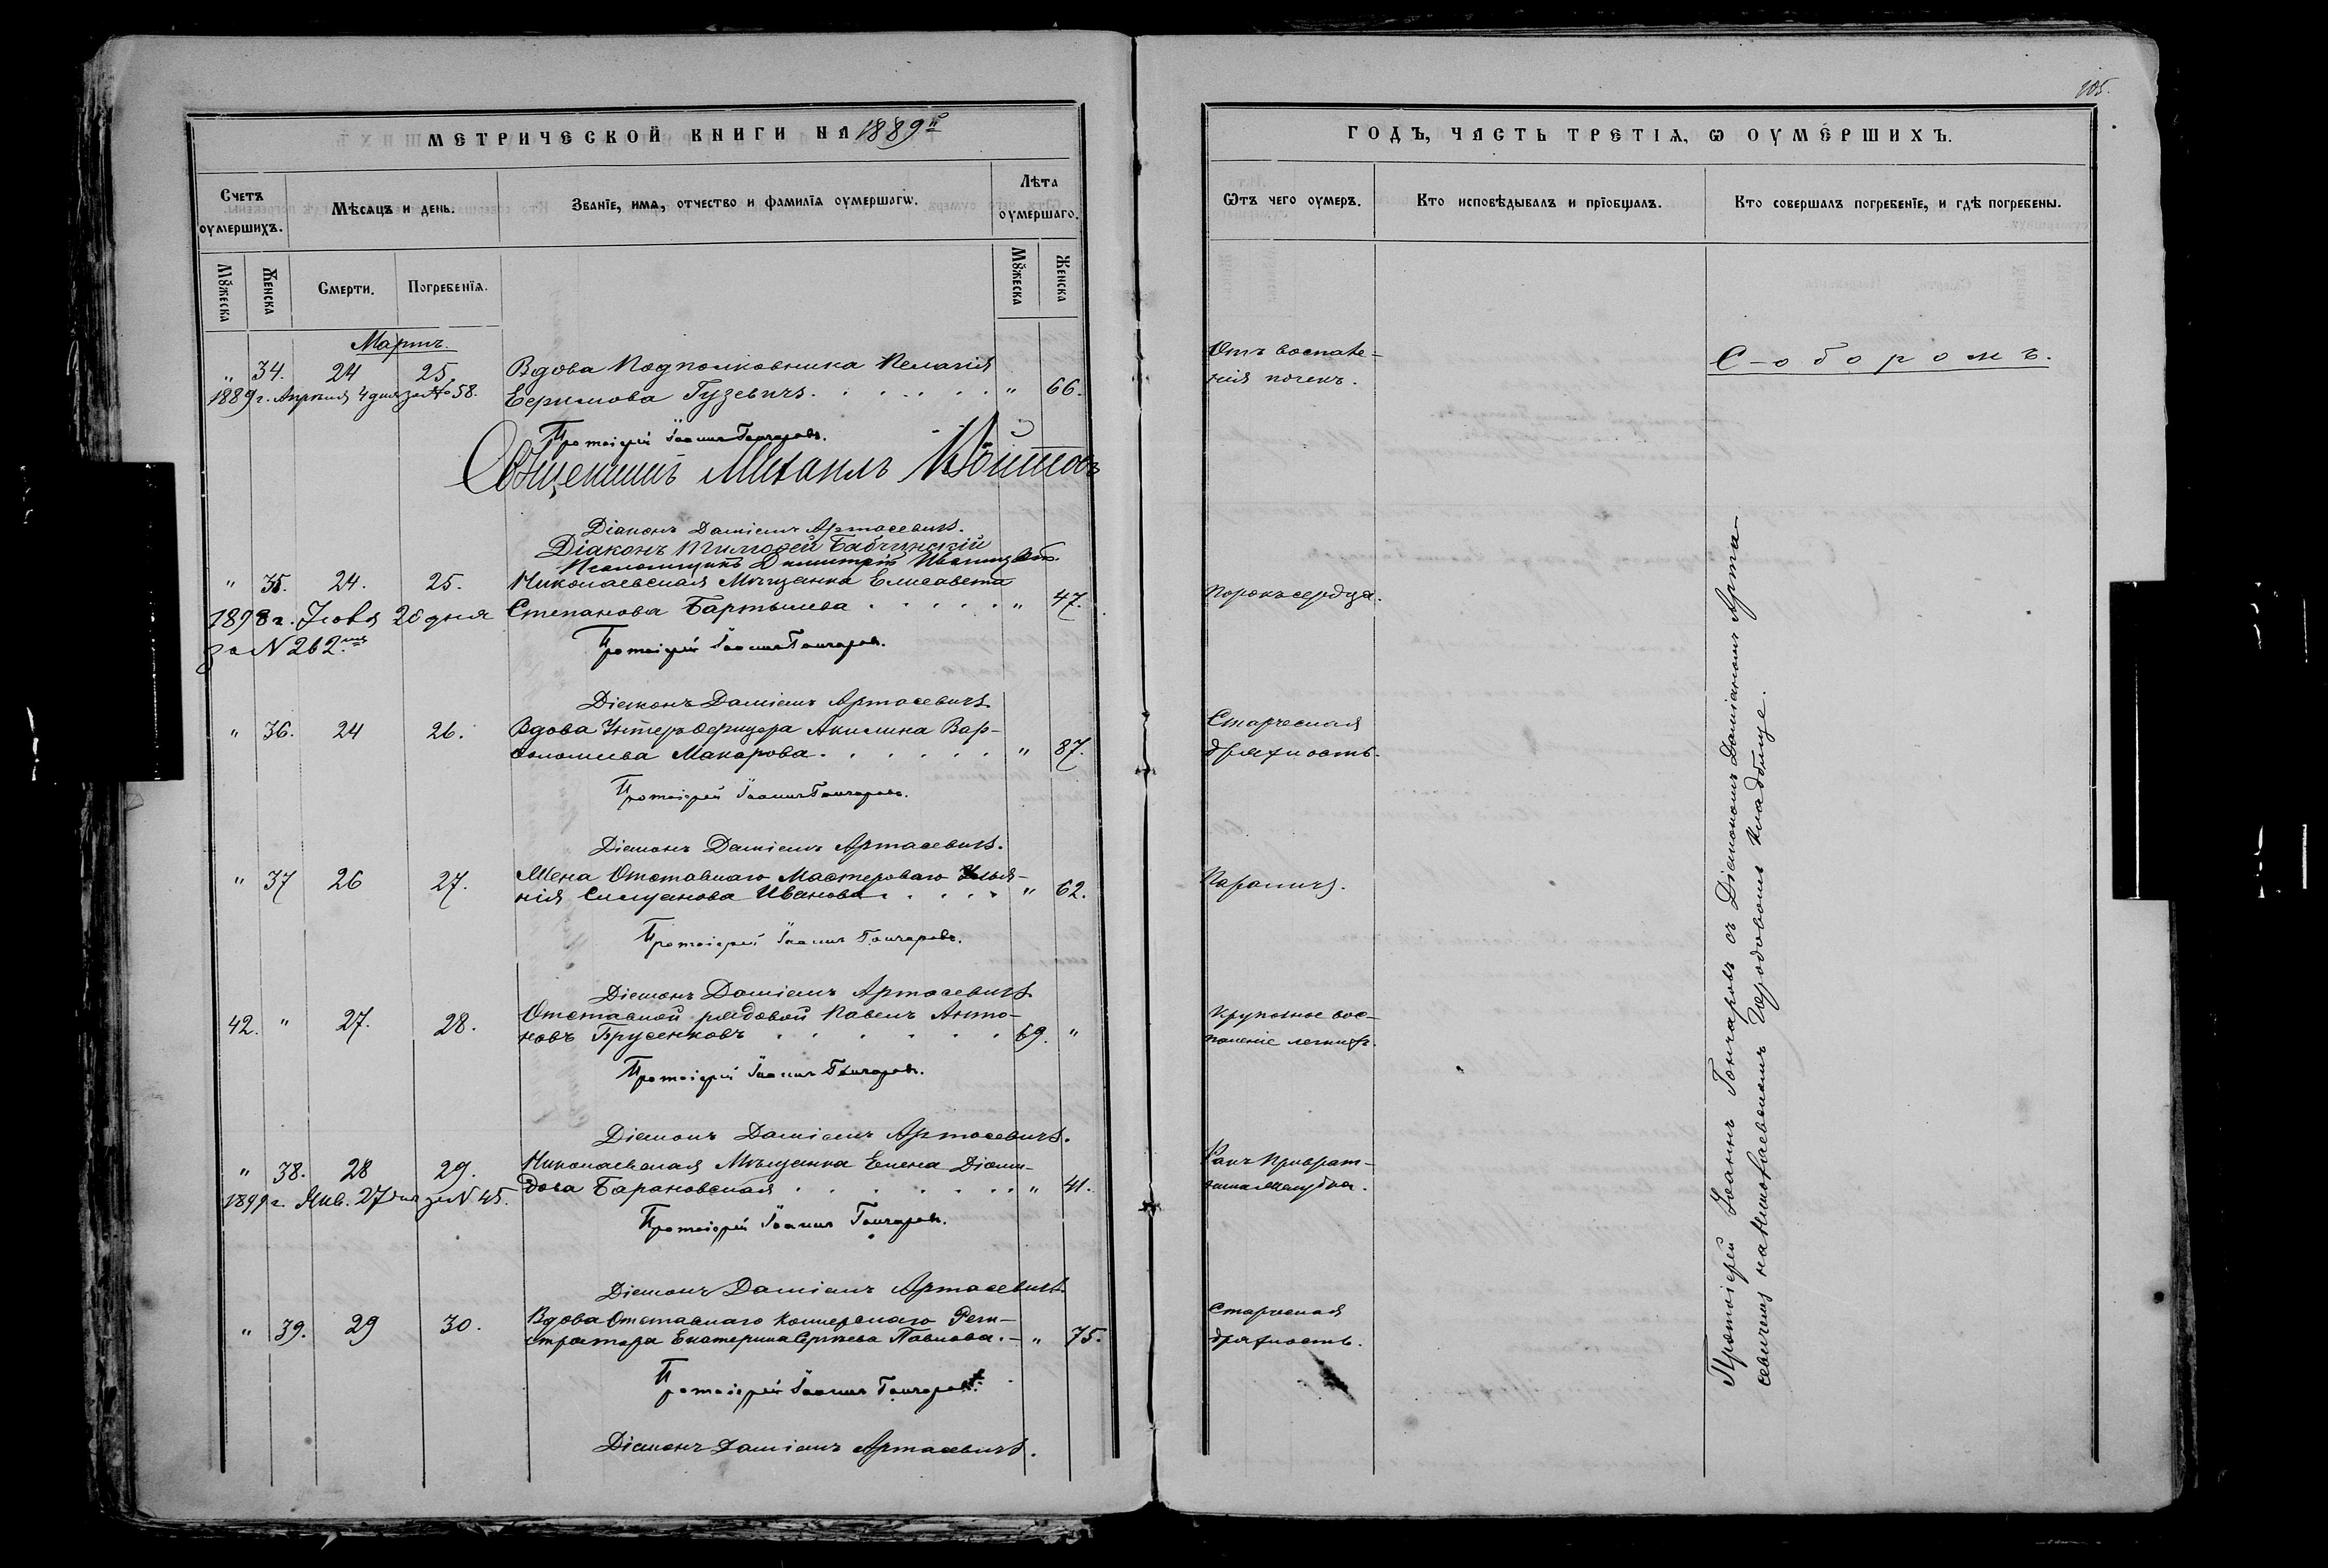 105.
МЕТРИЧЕСКОЙ КНИГИ НА 1889й
ГОДЪ, ЧАСТЬ ТРЕТІѦ, Ѡ ОУМЕРШИХЪ.
Счетъ оумершихъ.
Мѣсяцъ и день.
Званїе, имѧ, отчество и фамилїѧ оумершагѡ.
Лѣта оумершаго.
Ѿтъ чего оумеръ.
Кто исповѣдывалъ и прїобщалъ.
Кто совершалъ погребенїе, и гдѣ погребены.
Мꙋжеска
Женска
Смерти.
Погребенїѧ.
Мꙋжеска
Женска
Мартъ.
" 34. 24 25 Вдова Подполковника Пелагія
1889 г. Апрѣля 4 дня за № 58. Ефимова Гузевичъ. " 66.
Отъ воспале-
нія почекъ.
Соборомъ.
Протоіерей Іоаннъ Гончаровъ.
Священникъ Михаилъ
Діаконъ Даміанъ Артасевичъ.
Діаконъ Тимофей Бабчинскій
Псаломщикъ Димитрій
" 35. 24. 25. Николаевская Мѣщанка Елисавета
1898 г. Ноября 20 дня Степанова Бартышева " 47.
за N 262.
Порокъ сердца.
Протоіерей Іоаннъ Гончаровъ.
Діаконъ Даміанъ Артасевичъ.
" 36. 24 26. Вдова Унтеръ Офицера Акилина Вар-
фоломеева Макарова. " 87.
Старческая
дряхлость.
Протоіерей Іоаннъ Гончаровъ.
Діаконъ Даміанъ Артасевичъ.
" 37 26 27. Жена Отставнаго Мастероваго Улья-
нія Силуанова Иванова. " 62.
Параличъ.
Протоіерей Іоаннъ Гончаровъ.
Діаконъ Даміанъ Артасевичъ.
42. " 27. 28. Отставной рядовой Павелъ Анто-
новъ Брусенковъ 69. "
Крупозное вос-
паленіе легкихъ.
Протоіерей Іоаннъ Гончаровъ.
Діаконъ Даміанъ Артасевичъ.
" 38. 28 29. Николаевская Мѣщанка Елена Діоми-
1899 г. Янв. 27 дня за N 45. дова Барановская " 41.
Ракъ Приврат-
ника Желудка.
Протоіерей Іоаннъ Гончаровъ.
Діаконъ Даміанъ Артасевичъ.
" 39. 29 30. Вдова Отставнаго Коллежскаго Реги-
стратора Екатерина Сергѣева Павлова. " 75.
Старческая
дряхлость.
Протоіерей Іоаннъ Гончаровъ.
Діаконъ Даміанъ Артасевичъ.
Протоіерей Іоаннъ Гончаровъ съ Діакономъ Даміаномъ Арта-
севичемъ на Николаевскомъ Городовомъ Кладбище.